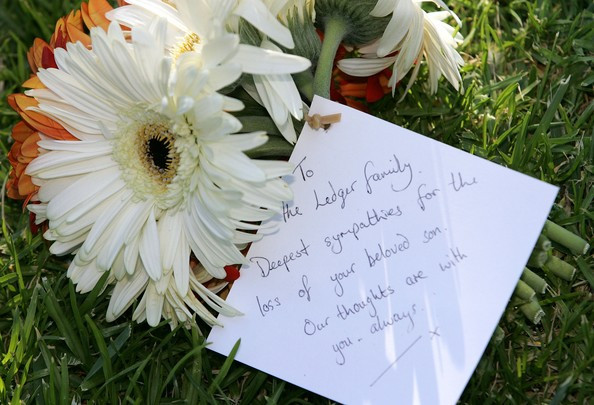 To
the Ledger family.
Deepest sympathies for the
loss of your beloved son.
Our thoughts are with
you. always.
x